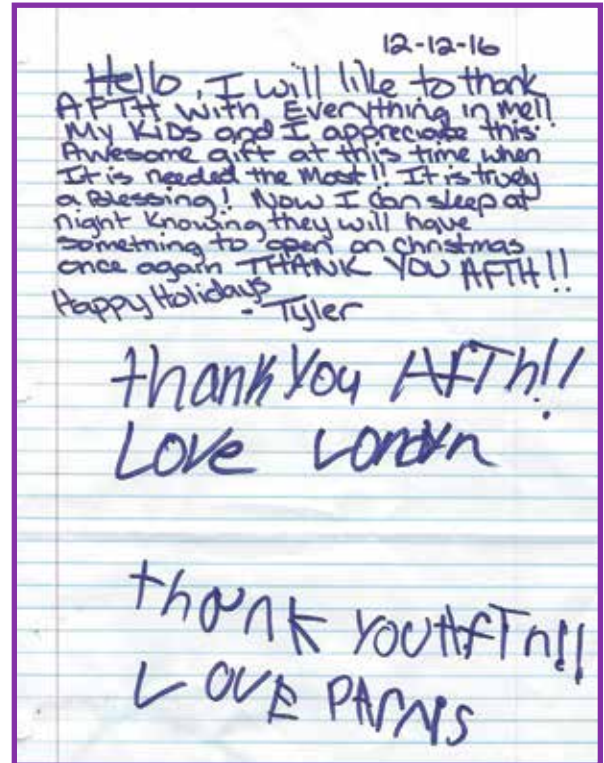 12-12-16
Hello, I will like to thank
AFTH with Everything in me!!
My KiDs and I appreciate this
Awesome gift at this time when
It is needed the Most!! It is truely
a Blessing! Now I can sleep at
night Knowing they will have
something to open on christmas
once again THANK YOU AFTH!!
Happy Holidays
- Tyler
thank You AfTh!!
Love Londyn
thank YOU AfTh!!
LOVE PArNis